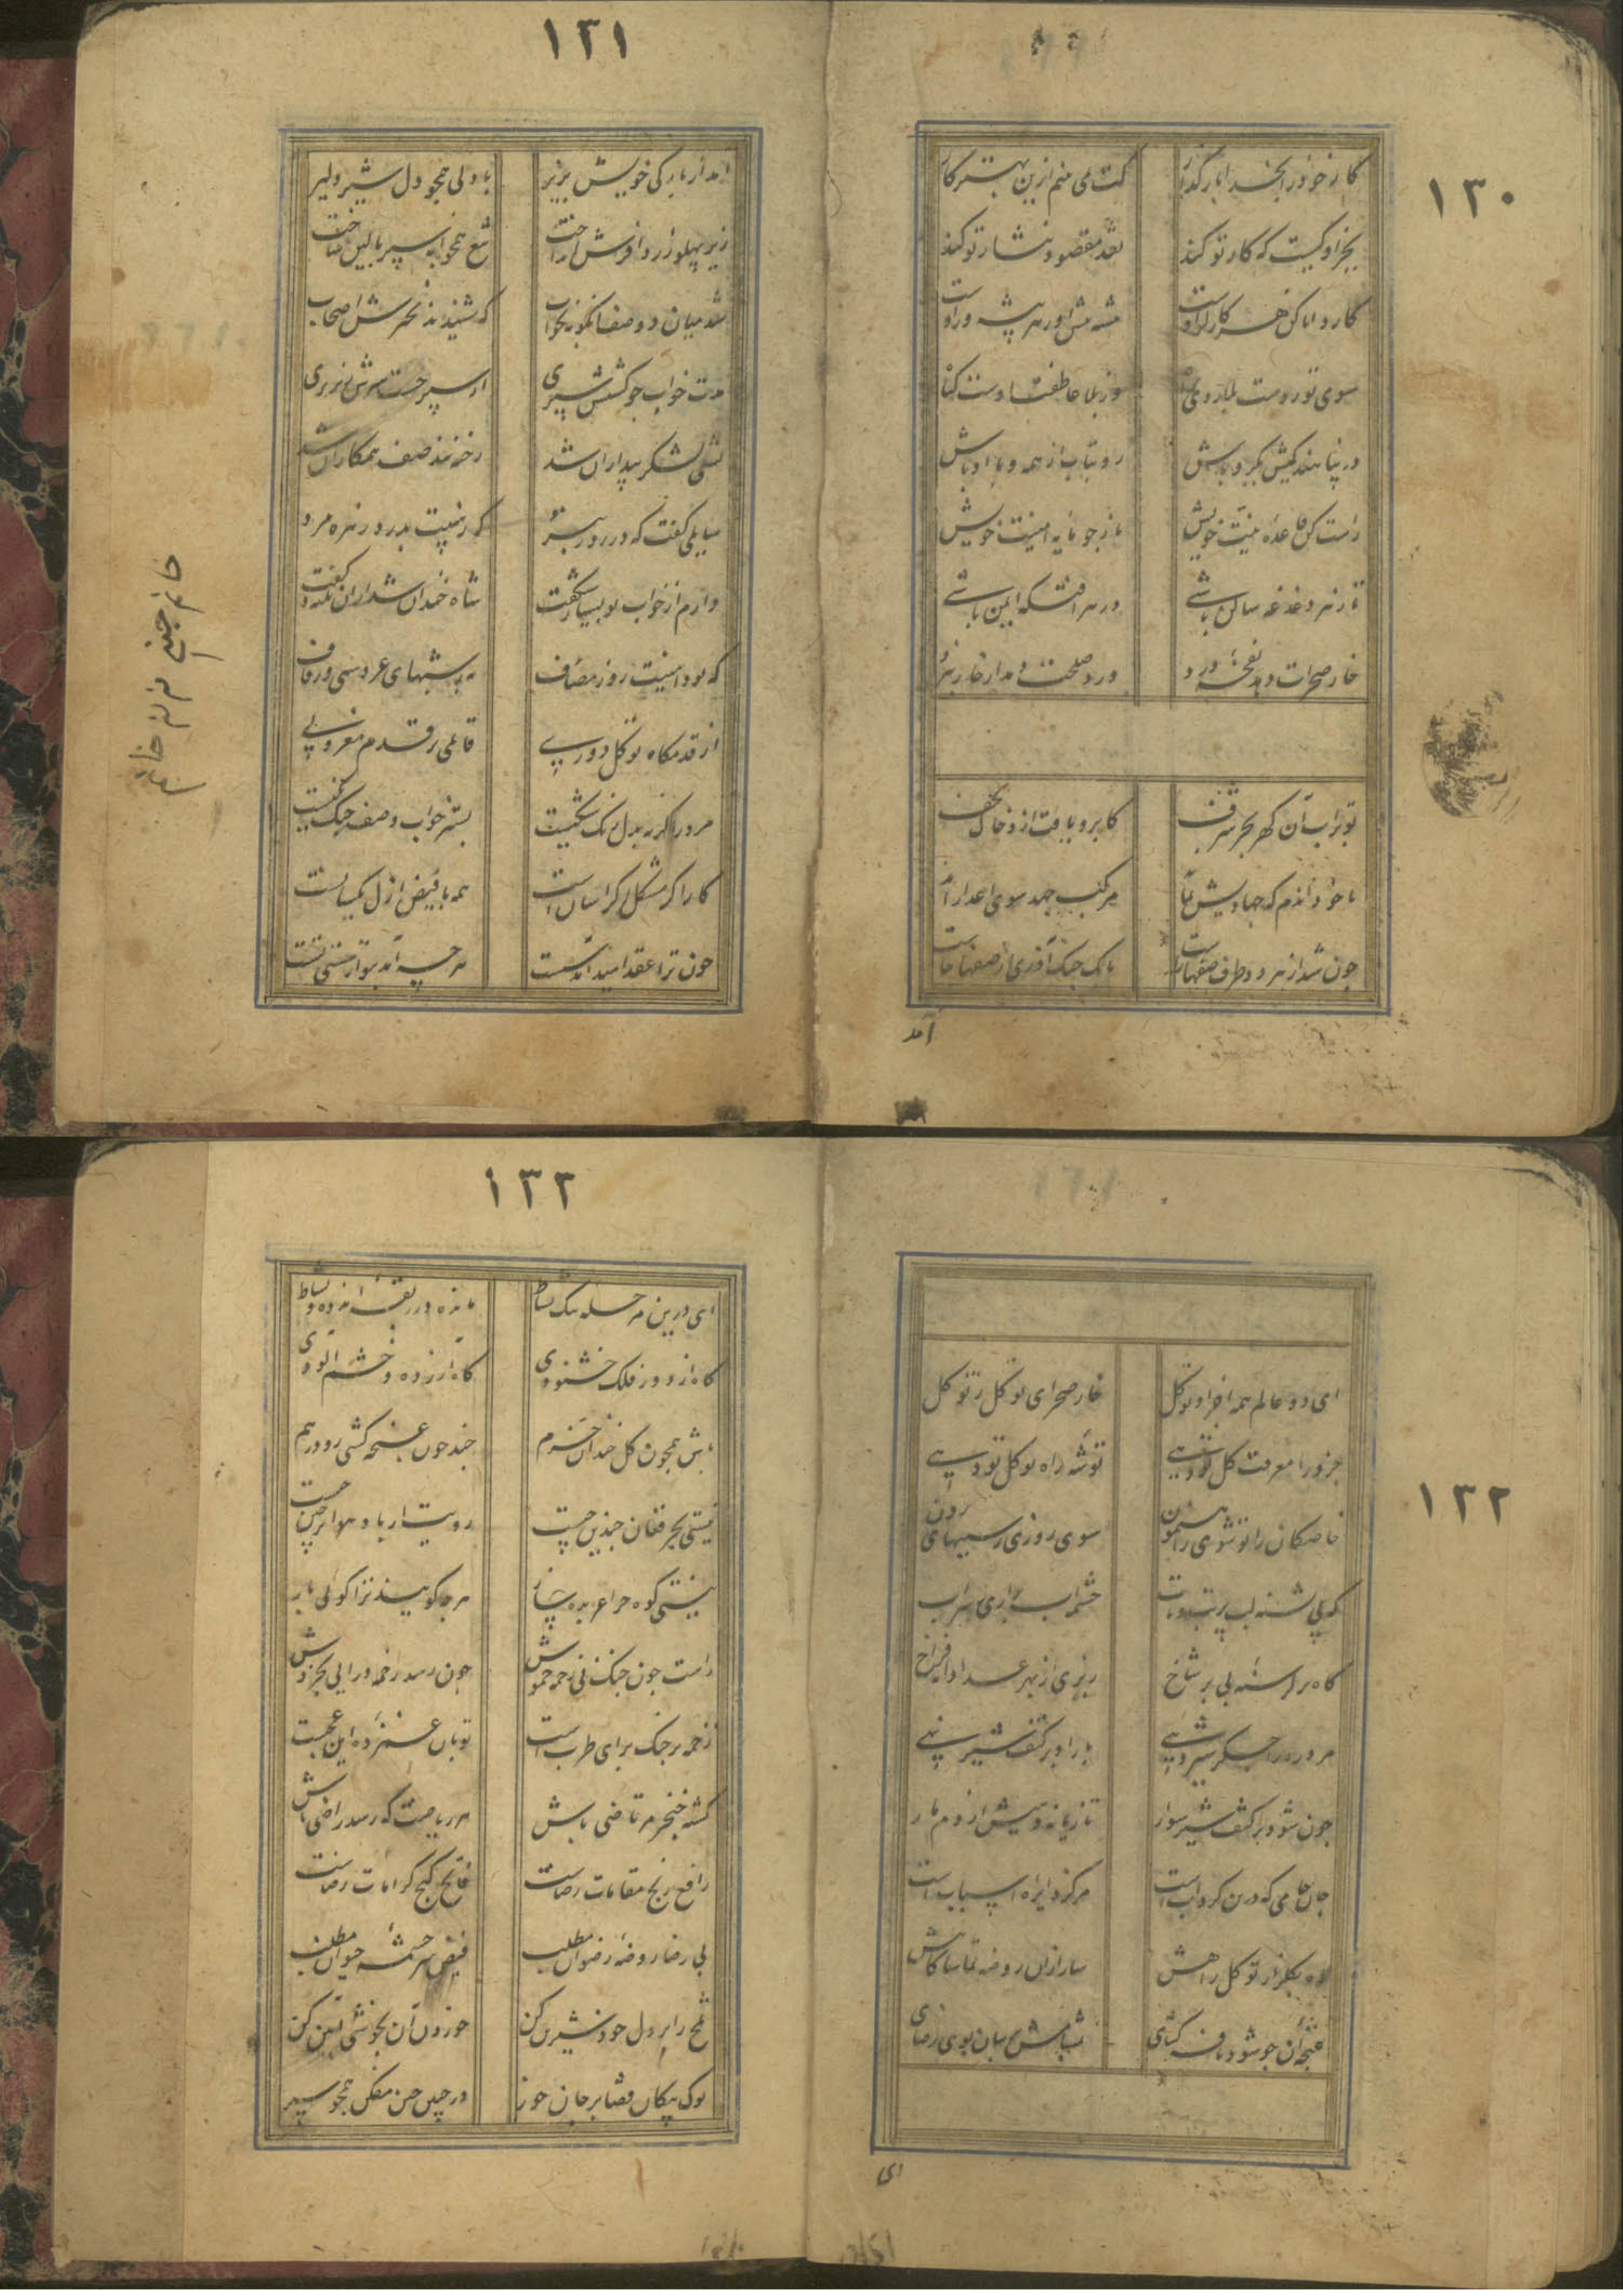 ۱۳۰
کار خود را بخدا بازگذار کت نمی بینم ازین بهتر کار
بجز او کیست که کار تو کند نقد مقصود نثار تو کند
سوی تو روست بلا روی وز بلا عاطفت اوست
در پناهندگیش یکرو باش روبتاب از همه و با او باش
راست کن قاعده نیت خویش بازجو مایه امنیت خویش
تا ز هر دغدغه ساکن باشی در هر آفتکده ایمن باشی
بوتراب آن گهر بحر شرف کابرو یافت ازو خاک نجف
با خود اندم که جهادیش مرکب جهد سوی اعدا
چون شد از هر دو طرف صفها راست بانک جنگ آوری از صفها خاست
آمد
۱۳۱
آمد از بارگی خویش بزیر با دلی همچو دل شیر دلیر
زیر پهلو زردا فرش انداخت تیغ همخوابه سپر بالین ساخت
شد میان دو صف آنگونه بخواب که شنیدند نخیرش اصحاب
مدت خواب چو گشتش سپری از سپر جست سرش بر سپری
لشکر بیداران شد رخنه بند صف همکاران شد
سایلی گفت که در روز نبرد که ز هیبت بدرد زهره مرد
دارم از خواب تو بسیار شگفت شاه خندان شد از ان نکته و گفت
که بود امنیت روز مصاف به ز شبهای عروسی و زفاف
از قدمگاه توکل دوری قایلی بر قدم مغروری
مرد را گرنه بدل رنگ شکیست بستر خواب و صف جنگ یکیست
کار اگر مشکل اگر آسانست همه با فیض ازل یکسانست
چون ترا عقد امید آمد سست هر چه آمد بتو از سستی تست
۱۳۲
ای دو عالم همه اجزا و تو کل خار صحرای توکل ز تو گل
جزو را معرفت کل تو دهی توشه راه توکل تو دهی
خاصگان را تو شوی راهنمون سوی روزی ز سببهای برون
گه پی تشنه لب پر تب و تاب چشمه آب بر آری ز سراب
گاه بر گرسنه بی بر شاخ ریزی از بهر غدا دانه فراخ
مرد ره را جگر شیر دهی بار او بر کتف شیر نهی
چون شود بر کتف شیر سوار تازیانه دهیش از دم مار
جان جامی که درین گردابست مرکز دایره اسبابست
ده بگلزار توکل راهش ساز ازان روضه تماشاگاهش
غنچه آن چو شود نافه گشای بمشامش برسان بوی رضای
ای
۱۳۳
ای درین مرحله تنگ بساط مانده در ربقه اندوه و نشاط
گاه از دور فلک خشنودی گاه آزرده و خشم آلودی
باش همچون گل خندان خرم چند چون غنچه کشی رو درهم
نیستی بحر فغان چندین چیست رویت از باد هوا پر چین چیست
نیستی کوه چرا عربده ساز هر چه گویند ترا گویی باز
راست چون چنگ بی زخمه خموش چون رسد زخمه در آیی بخروش
زخمه بر چنگ برای طرب است تو بان غمزده این عجبست
کشته خنجر مرتاضی باش هر ریاضت که رسد راضی باش
رافع رنج مقامات رضاست فاتح گنج کرامات رضاست
بی رضا روضه رضوان مطلب فیض سرچشمه حیوان مطلب
تلخ را بر دل خود شیرین کن خوردن آن بخوشی آیین کن
نوک پیکان قضا بر جان خور در جبین چین مفکن همچو سپر